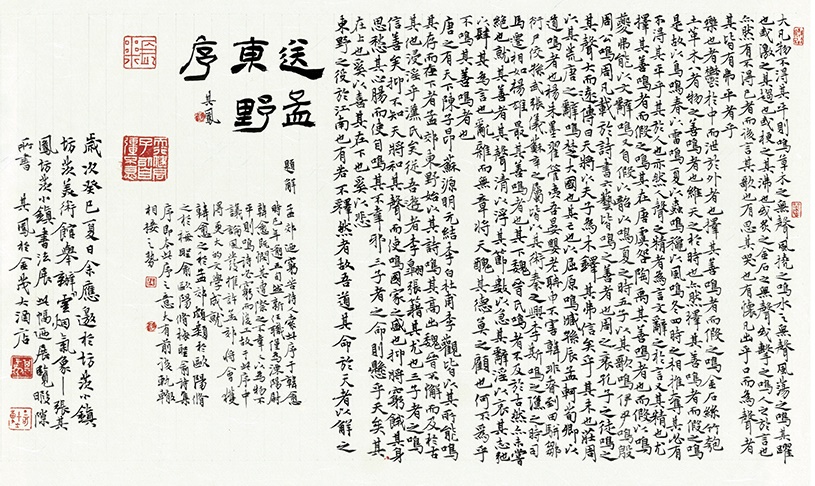 大凡物不得其平則鳴草木之無聲風撓之鳴水之無聲風蕩之鳴其躍
也或激之其趨也或梗之其沸也或炙之金石之無聲或擊之鳴人之於言也
亦然有不得已者而後言其歌也有思其哭也有懷凡出乎口而為聲者
其皆有弗平者乎
樂也者鬱於中而泄於外者也擇其善鳴者而假之鳴金石絲竹匏
土革木者物之善鳴者也維天之於時也亦然擇其善鳴者而假之鳴
是故以鳥鳴春以雷鳴夏以蟲鳴秋以風鳴冬四時之相推奪其必有
不得其平乎其於人也亦然人聲之精者為言文辭之於言又其精也尤
擇其善鳴者而假之鳴其在唐虞咎陶禹其善鳴者也而假以鳴
夔弗能以文辭鳴又自假於韶以鳴夏之時五子以其歌鳴伊尹鳴殷
周公鳴周凡載於詩書六藝皆鳴之善者也周之衰孔子之徒鳴之
其聲大而遠傳曰天將以夫子為木鐸其弗信矣乎其末也莊周
以其荒唐之辭鳴楚大國也其亡也以屈原鳴臧孫辰孟軻荀卿以
道鳴者也楊朱墨翟管夷吾晏嬰老聃申不害韓非昚到田駢鄒
衍尸佼孫武張儀蘇秦之屬皆以其術鳴秦之興李斯鳴之漢之時司
馬遷相如楊雄最其善鳴者也其下魏晉氏鳴者不及於古然亦未嘗
絕也就其善鳴者其聲清以浮其節數以急其辭淫以哀其志弛
以肆其為言也亂雜而無章將天醜其德莫之顧也何為乎
不鳴其善鳴者也
唐之有天下陳子昂蘇源明元結李白杜甫李觀皆以其所能鳴
其存而在下者孟郊東野始以其詩鳴其高出魏晉不懈而及於古
其他浸淫乎漢氏矣從吾遊者李翱張籍其尤也三子者之鳴
信善矣抑不知天將和其聲而使鳴國家之盛也抑將窮餓其身
思愁其心腸而使自鳴其不幸邪三子者之命則懸乎天矣其
在上也奚以喜其在下也奚以悲
東野之役於江南也有若不釋然者故吾道其命於天者以解之
送孟
東野
序
其鳳
題解
孟郊
韓愈
歲次癸巳夏日余應邀於坊茨小鎮
坊茨美術館舉辦雲烟氣象—張其
鳳坊茨小鎮書法展
其鳳於金茂大酒店